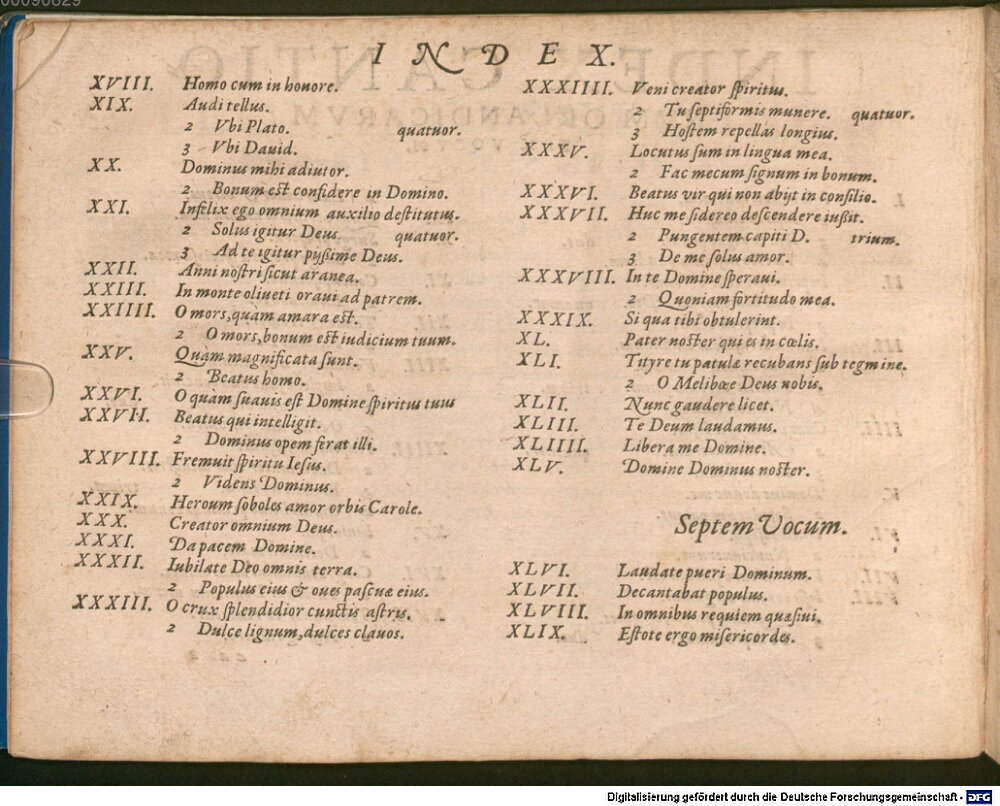 00090829
INDEX.
XVIII. Homo cum in honore.
XIX. Audi tellus.
2 Vbi Plato. quatuor.
3 Vbi Dauid.
XX. Dominus mihi adiutor.
2 Bonum est confidere in Domino.
XXI. Infelix ego omnium auxilio destitutus.
2 Solus igitur Deus. quatuor.
3 Ad te igitur pyßime Deus.
XXII. Anni nostri sicut aranea.
XXIII. In monte oliueti oraui ad patrem.
XXIIII. O mors, quàm amara est.
2 O mors, bonum est iudicium tuum.
XXV. Quàm magnificata sunt.
2 Beatus homo.
XXVI. O quàm suauis est Domine spiritus tuus
XXVII. Beatus qui intelligit.
2 Dominus opem ferat illi.
XXVIII. Fremuit spiritu Iesus.
2 Videns Dominus.
XXIX. Heroum soboles amor orbis Carole.
XXX. Creator omnium Deus.
XXXI. Da pacem Domine.
XXXII. Iubilate Deo omnis terra.
2 Populus eius & oues pascuæ eius.
XXXIII. O crux splendidior cunctis astris.
2 Dulce lignum, dulces clauos.
XXXIIII. Veni creator spiritus.
2 Tu septiformis munere. quatuor.
3 Hostem repellas longius.
XXXV. Locutus sum in lingua mea.
2 Fac mecum signum in bonum.
XXXVI. Beatus vir qui non abijt in consilio.
XXXVII. Huc me sidereo descendere iußit.
2 Pungentem capiti D. trium.
3 De me solus amor.
XXXVIII. In te Domine speraui.
2 Quoniam fortitudo mea.
XXXIX. Si qua tibi obtulerint.
XL. Pater noster qui es in cœlis.
XLI. Tityre tu patulæ recubans sub tegmine.
2 O Melibœe Deus nobis.
XLII. Nunc gaudere licet.
XLIII. Te Deum laudamus.
XLIIII. Libera me Domine.
XLV. Domine Dominus noster.
Septem Vocum.
XLVI. Laudate pueri Dominum.
XLVII. Decantabat populus.
XLVIII. In omnibus requiem quæsiui.
XLIX. Estote ergo misericordes.
Digitalisierung gefördert durch die Deutsche Forschungsgemeinschaft - DFG